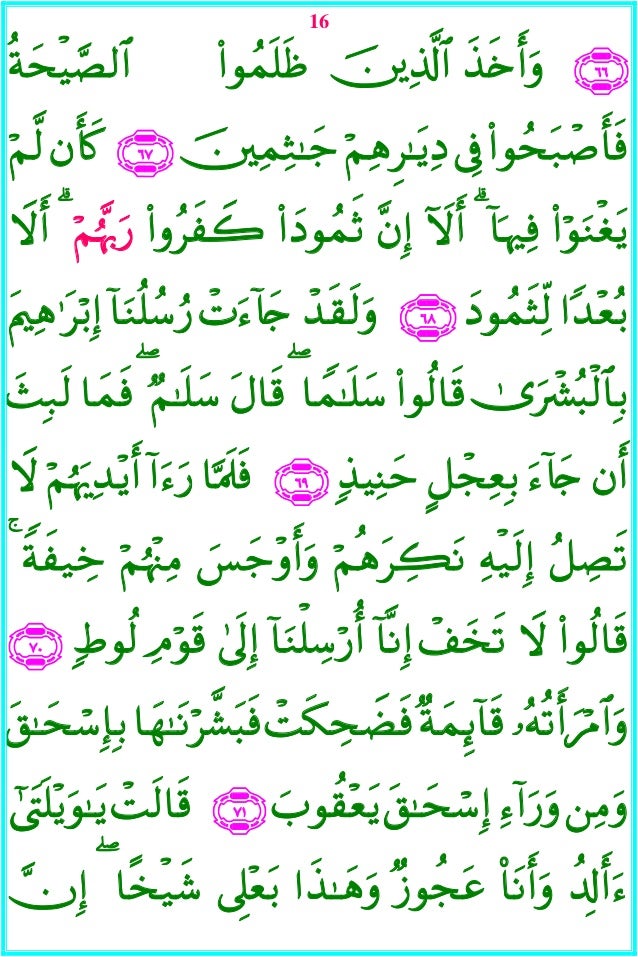 16
۝٦٦ وَأَخَذَ ٱلَّذِينَ ظَلَمُوا۟ ٱلصَّيْحَةُ
فَأَصْبَحُوا۟ فِى دِيَـٰرِهِمْ جَـٰثِمِينَ ۝٦٧ كَأَن لَّمْ
يَغْنَوْا۟ فِيهَآ ۗ أَلَآ إِنَّ ثَمُودَا۟ كَفَرُوا۟ رَبَّهُمْ ۗ أَلَا
بُعْدًا لِّثَمُودَ ۝٦٨ وَلَقَدْ جَآءَتْ رُسُلُنَآ إِبْرَٰهِيمَ
بِٱلْبُشْرَىٰ قَالُوا۟ سَلَـٰمًا ۖ قَالَ سَلَـٰمٌ ۖ فَمَا لَبِثَ
أَن جَآءَ بِعِجْلٍ حَنِيذٍ ۝٦٩ فَلَمَّا رَءَآ أَيْدِيَهُمْ لَا
تَصِلُ إِلَيْهِ نَكِرَهُمْ وَأَوْجَسَ مِنْهُمْ خِيفَةً ۚ
قَالُوا۟ لَا تَخَفْ إِنَّآ أُرْسِلْنَآ إِلَىٰ قَوْمِ لُوطٍ ۝٧٠
وَٱمْرَأَتُهُۥ قَآئِمَةٌ فَضَحِكَتْ فَبَشَّرْنَـٰهَا بِإِسْحَـٰقَ
وَمِن وَرَآءِ إِسْحَـٰقَ يَعْقُوبَ ۝٧١ قَالَتْ يَـٰوَيْلَتَىٰٓ
ءَأَلِدُ وَأَنَا۠ عَجُوزٌ وَهَـٰذَا بَعْلِى شَيْخًا ۖ إِنَّ